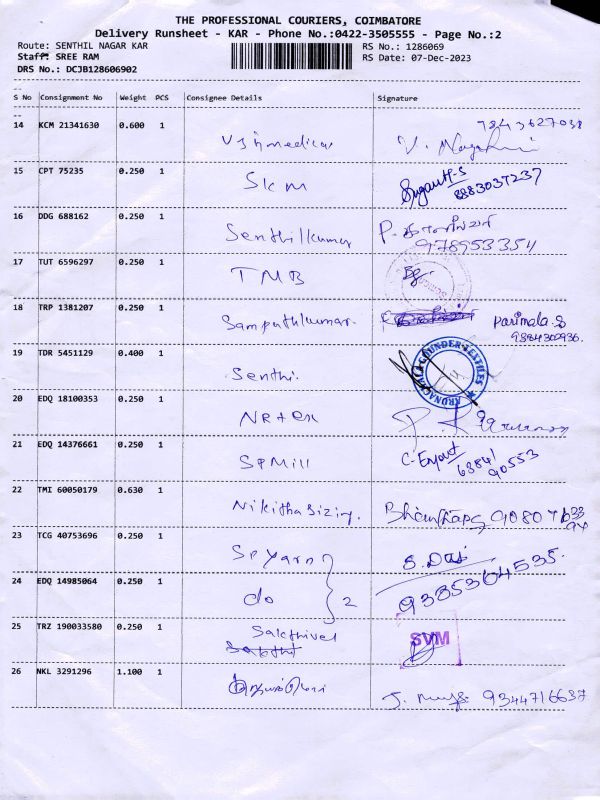 THE PROFESSIONAL COURIERS, COIMBATORE
Delivery Runsheet - KAR - Phone No.:0422-3505555 - Page No.:2
Route: SENTHIL NAGAR KAR RS No.: 1286069
Staff: SREE RAM RS Date: 07-Dec-2023
DRS No.: DCJB128606902
S No Consignment No Weight PCS Consignee Details Signature
14 KCM 21341630 0.600 1
15 CPT 75235 0.250 1 SKM Sugant.S
8883037237
16 DDG 688162 0.250 1 Senthilkumar P.
978953354
17 TUT 6596297 0.250 1 TMB
18 TRP 1381207 0.250 1 Sampathkumar. Parimala.S
19 TDR 5451129 0.400 1 Senthi. ARUNACHALA GOUNDER TEXTILES
20 EDQ 18100353 0.250 1
21 EDQ 14376661 0.250 1 SPMill 63841
90553
22 TMI 60050179 0.630 1 Nikitha Sizing.
23 TCG 40753696 0.250 1 SP yarn S. Das
24 EDQ 14985064 0.250 1 do 2 9385364535.
25 TRZ 190033580 0.250 1 Sakthivel SVM
26 NKL 3291296 1.100 1 9344716637